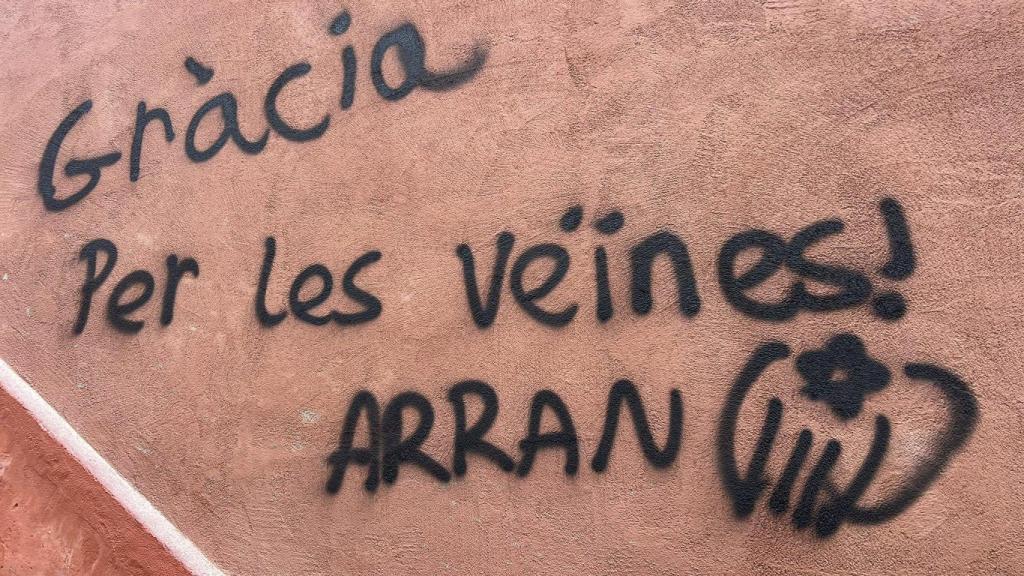 Gràcia
Per les veïnes!
ARRAN